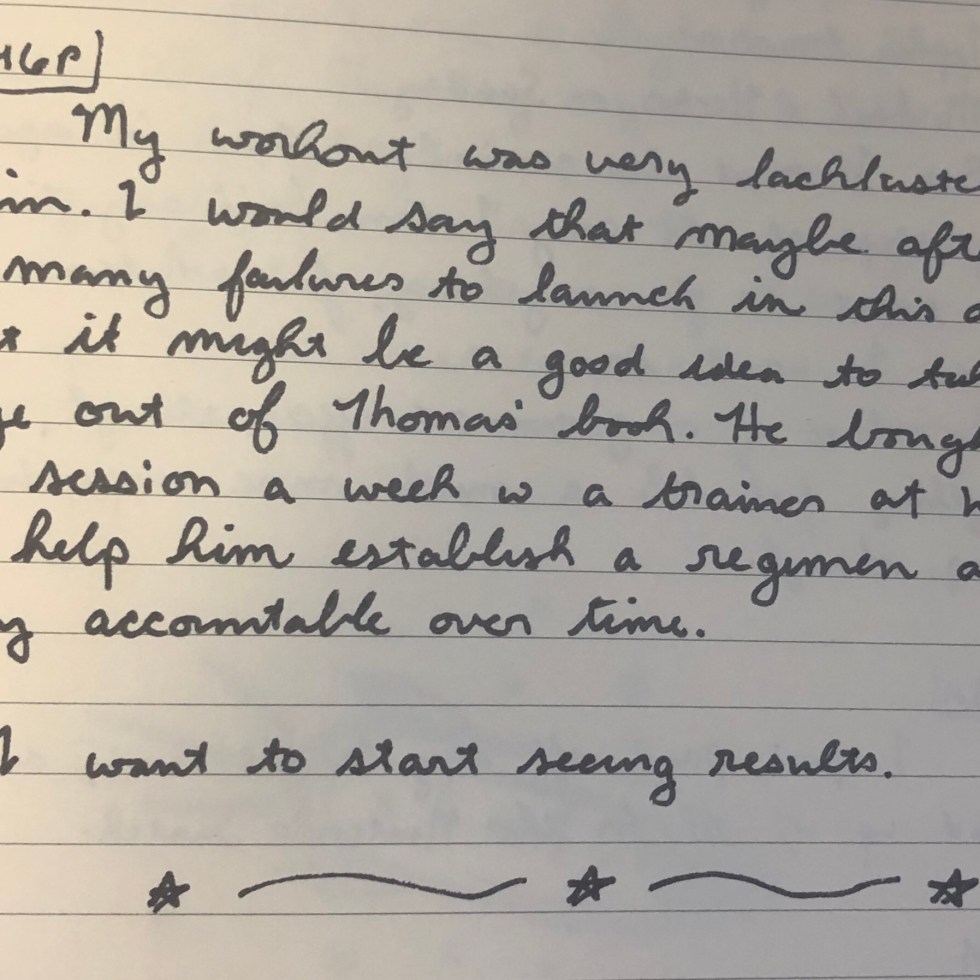 46P]
My workout was very lackluste
in. I would say that maybe aft
many failures to launch in this a
it might be a good idea to ta
ge out of Thomas' book. He bough
session a week w a trainer at h
help him establish a regimen a
y accountable over time.
I want to start seeing results.